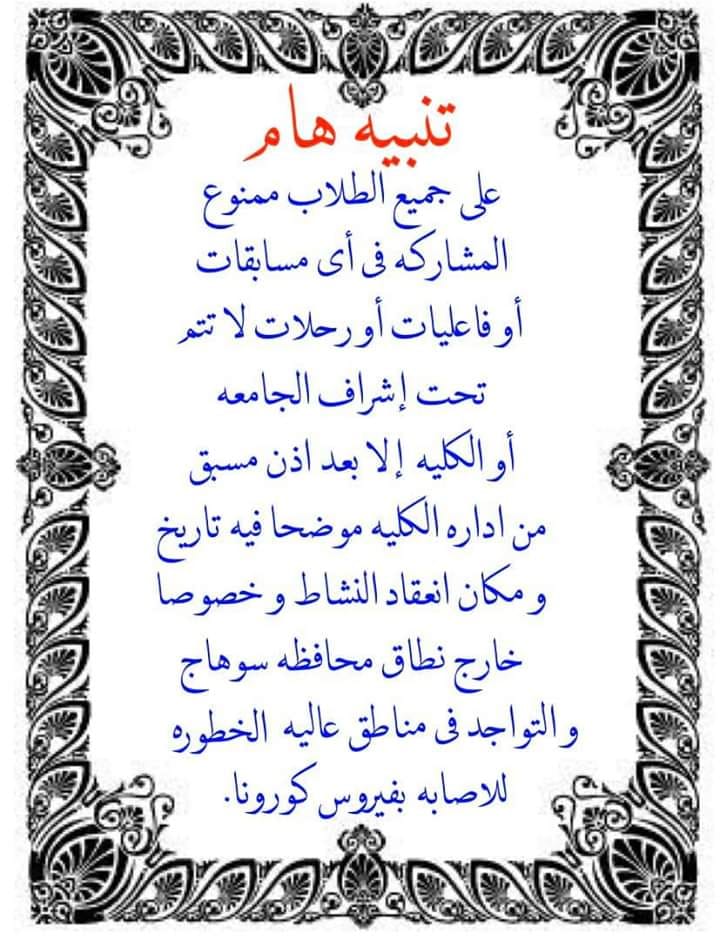 تنبيه هام
على جميع الطلاب ممنوع
المشاركه فى أى مسابقات
أو فاعليات أو رحلات لا تتم
تحت إشراف الجامعه
أو الكليه إلا بعد اذن مسبق
من اداره الكليه موضحا فيه تاريخ
و مكان انعقاد النشاط و خصوصا
خارج نطاق محافظه سوهاج
و التواجد فى مناطق عاليه الخطوره
للاصابه بفيروس كورونا.